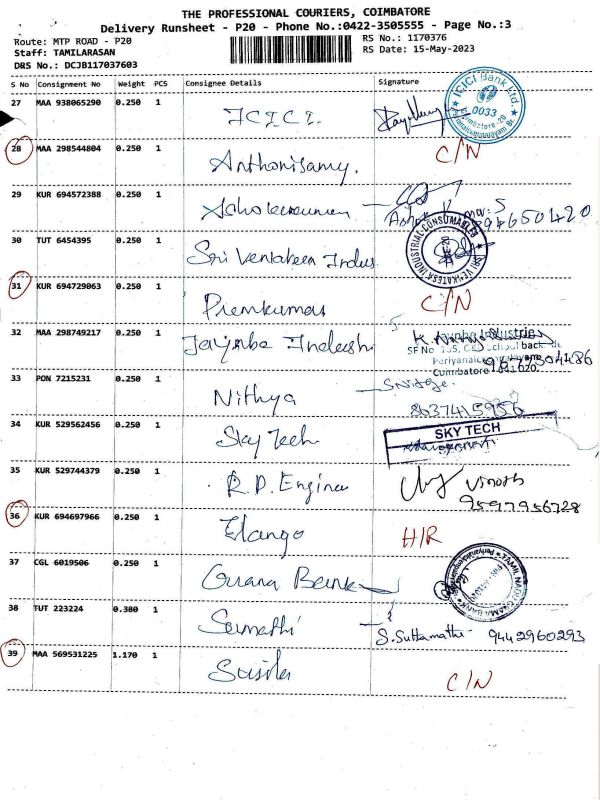 THE PROFESSIONAL COURIERS, COIMBATORE
Delivery Runsheet - P20 - Phone No.:0422-3505555 - Page No.:3
Route: MTP ROAD - P20 RS No.: 1170376
Staff: TAMILARASAN RS Date: 15-May-2023
DRS No.: DCJB117037603
S No Consignment No Weight PCS Consignee Details Signature
27 MAA 938065290 0.250 1 I.C.I.C.I. ICICI Bank Ltd. 0033
28 MAA 298544804 0.250 1 Anthonisamy. C/N
29 KUR 694572388 0.250 1
30 TUT 6454395 0.250 1 Sri Venkatesa Indus SRI VENKATESA INDUSTRIAL CONSUMABLES
31 KUR 694729063 0.250 1 Premkumar C/N
32 MAA 298749217 0.250 1 Jaynha Industries
SF No
Coimbatore
33 PON 7215231 0.250 1 Nithya 8637415956
34 KUR 529562456 0.250 1 Sky Tech SKY TECH
35 KUR 529744379 0.250 1 R.P. Enginee Vinoth
9597956728
36 KUR 694697966 0.250 1 Elango H/R
37 CGL 6019506 0.250 1 Bank TAMIL NADU GRAMA BANK
38 TUT 223224 0.380 1 Sumathi S.Suttamathi 9442960293
39 MAA 569531225 1.170 1 Susila C/N